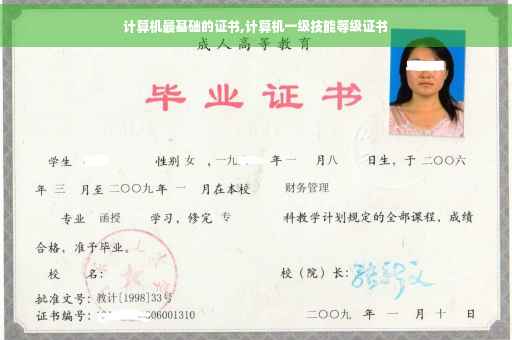 计算机最基础的证书,计算机一级技能等级证书
成人高等教育
毕业证书
学生 性别 女 ,一九 年 一 月八 日生,于二〇〇六
年 三 月至二〇〇九年 一 月在本校 财务管理
专业 函授 学习,修完 专 科教学计划规定的全部课程,成绩
合格,准予毕业。
校 名: 校(院)长:
批准文号:教计[1998]33号
证书编号: 06001310 二〇〇九 年 一 月 十 日